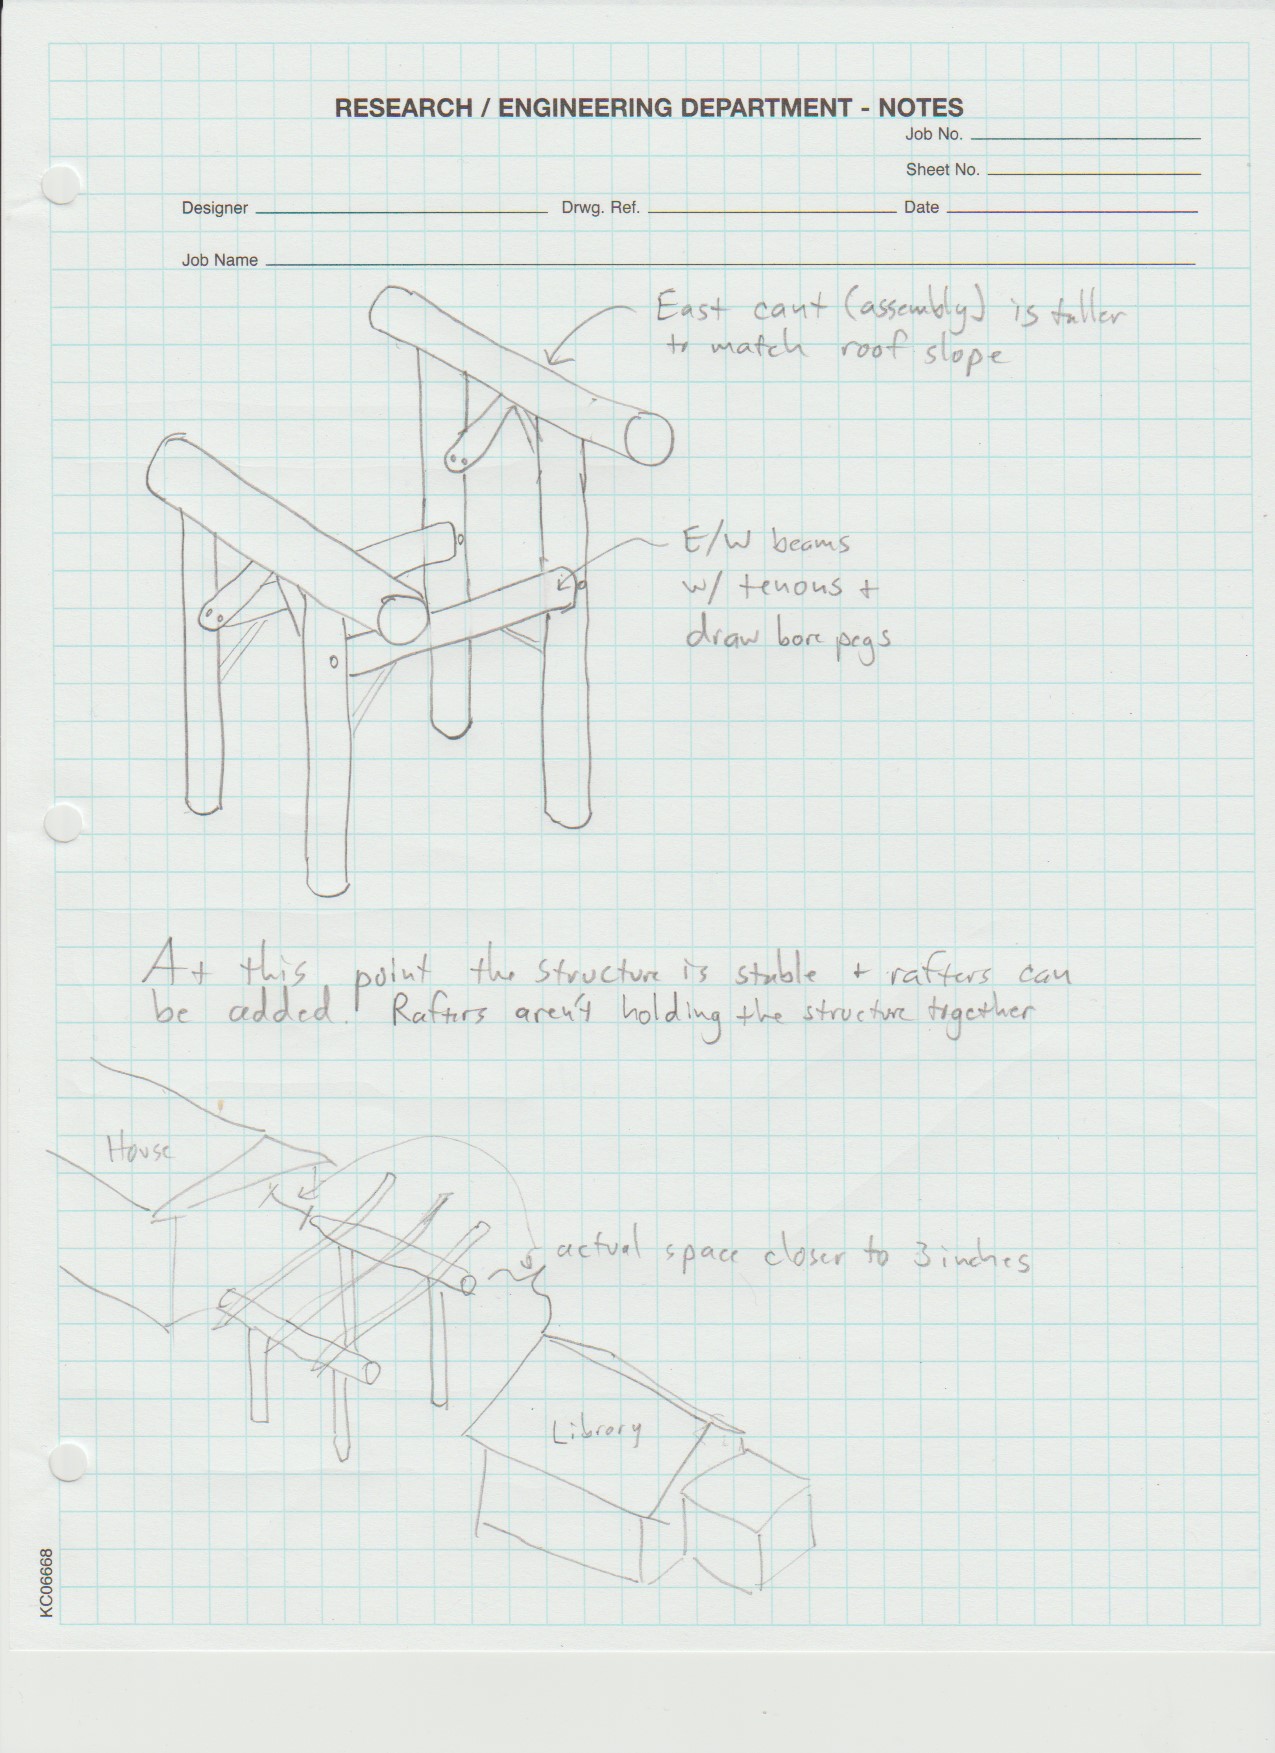 RESEARCH / ENGINEERING DEPARTMENT - NOTES
Job No.
Sheet No.
Designer Drwg. Ref. Date
Job Name
East cant (assembly) is taller
to match roof slope
E/W beams
w/ tenons +
draw bore pegs
At this point the structure is stable + rafters can
be added. Rafters aren't holding the structure together
House
actual space closer to 3 inches
Library
KC06668